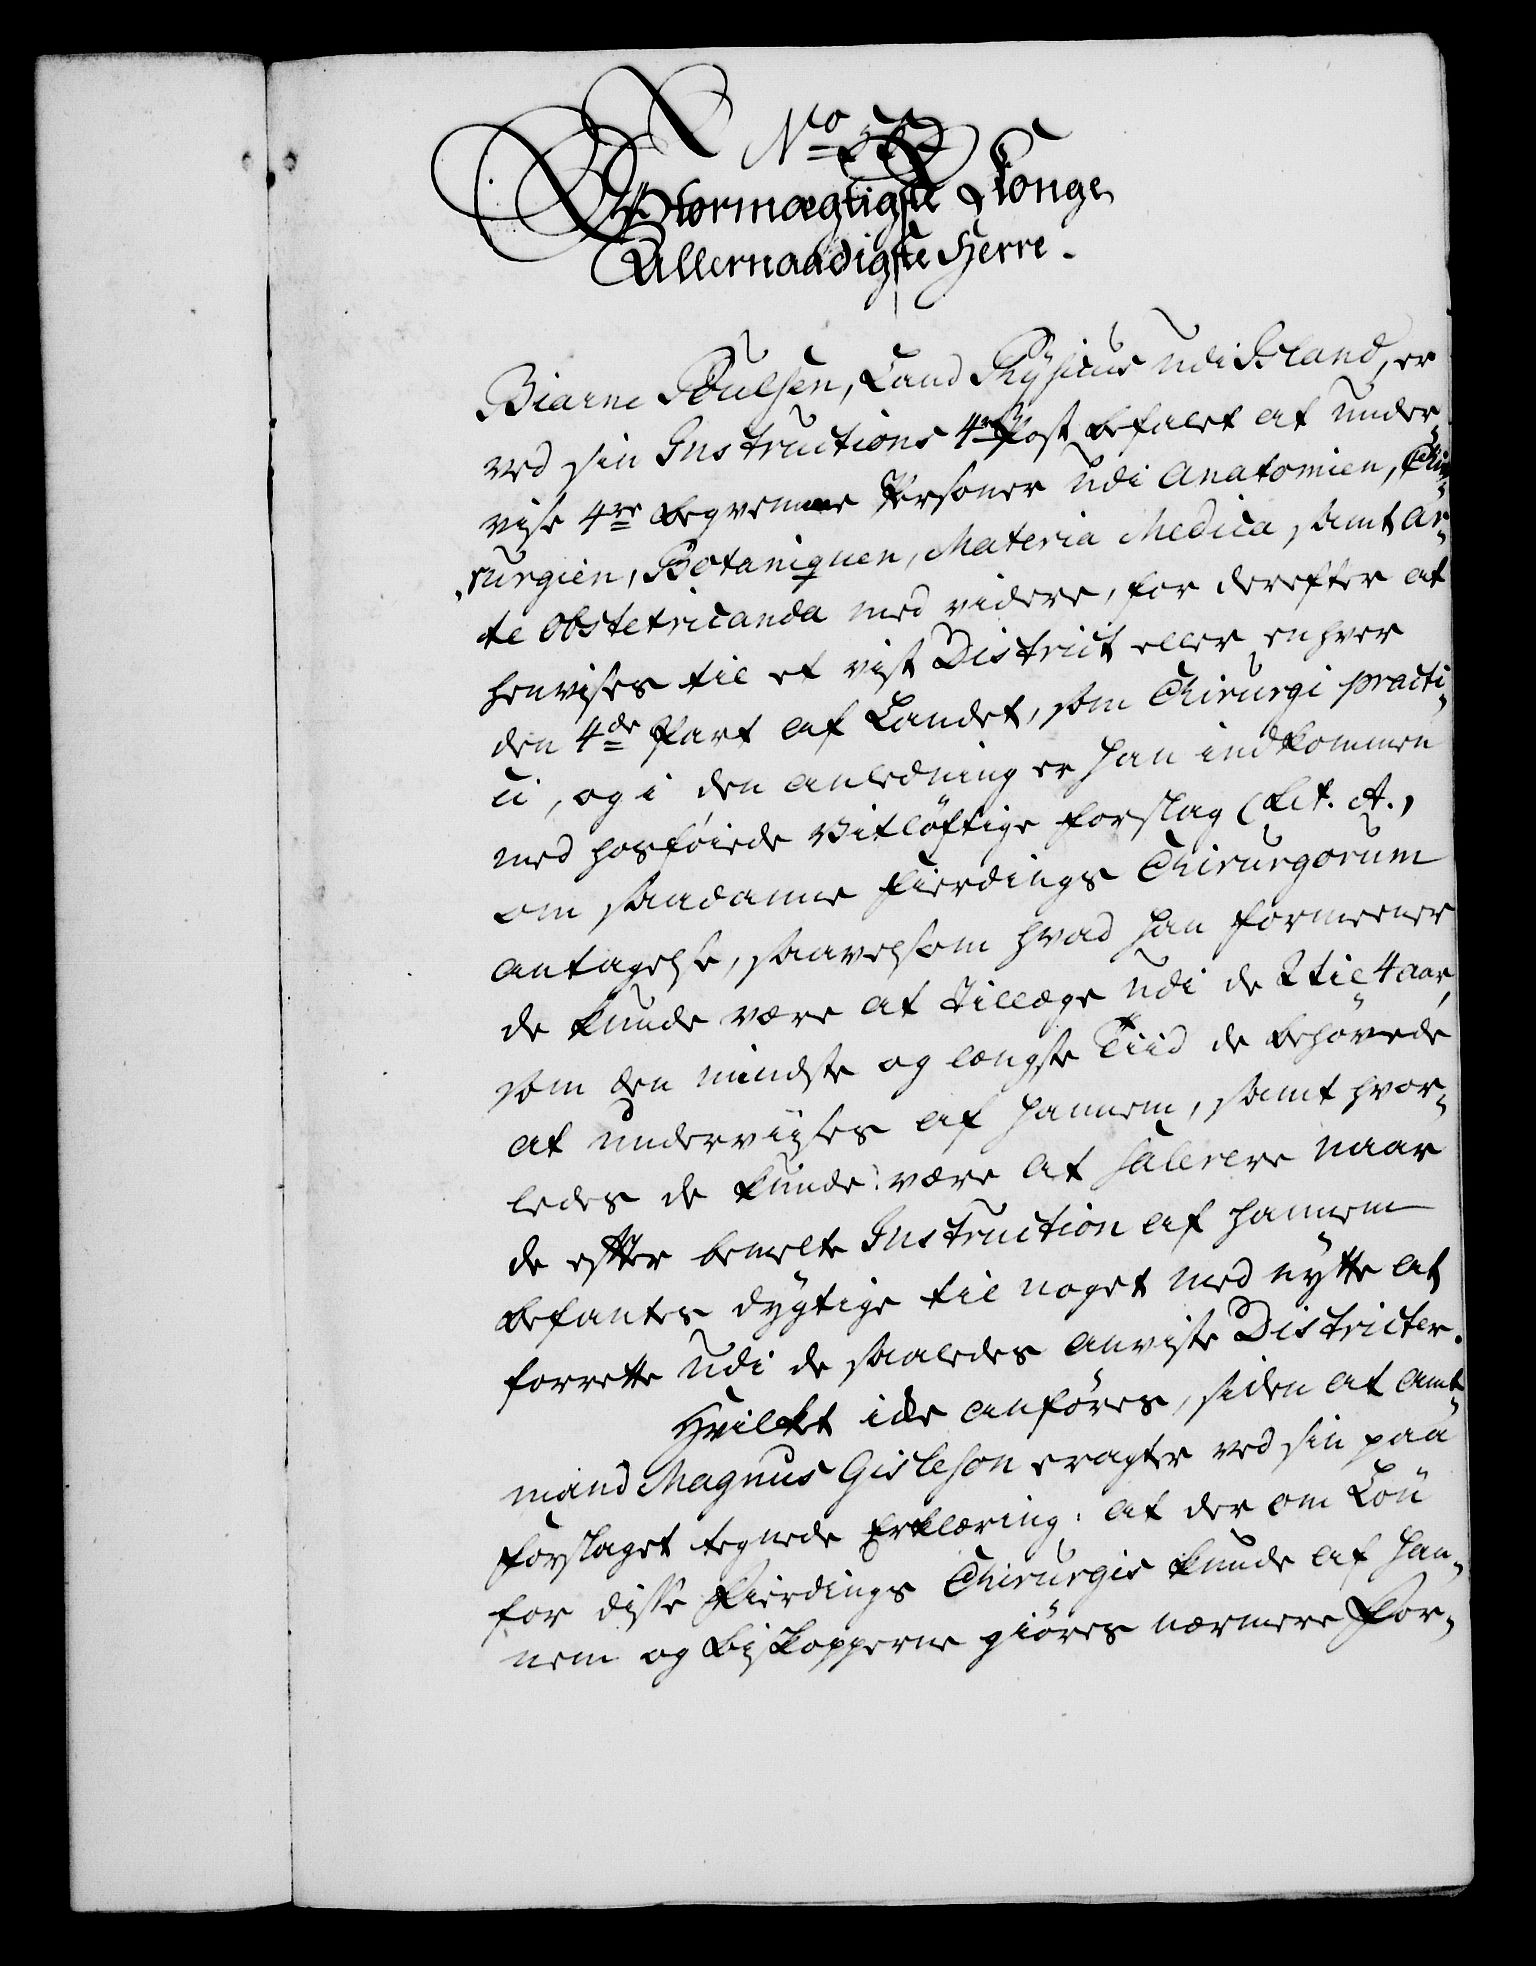 No
Stormægtigste Konge
Allernaadigste Herre.
Biarne Poulsen, Land Physicus udi Island, er
ved sin Instructions 4de Post befalet at under,,
vise 4re beqvemme Personer udi Anatomien, Chi,,
,,rurgien, Botaniquen, Materia Medica, samt Ar,,
te Obstetricanda med videre, for derefter at
henvises til et vist District eller enhver
den 4de Part af Landet, som Chirurgi practi,,
ci, og i den anledning er han indkommen
med hosføiede Vitløftige forslag (Lit. A.,
om saadanne Fierdings Chirurgorum
antagelse, saavelsom hvad han formeener
de kunde være at Tillægge udi de 2 til 4 aar,
som den mindste og længste Tiid de behøvede
at underviises af hannem, samt hvor,,
ledes de kunde være at salerere naar
de efter bemelte Instruction af hannem
befantes dygtige til noget med nytte at
forrette udi de saaledes anviste Districter.
Hvilket icke anføres, siden at Amt,,
mand Magnus Gisleson eragter ved sin paa
Forslaget tegnede Erklæring: at der om Løn
for disse Fierdings Chirurgis kunde af han,,
nem og Biskopperne giøres nærmere For,,